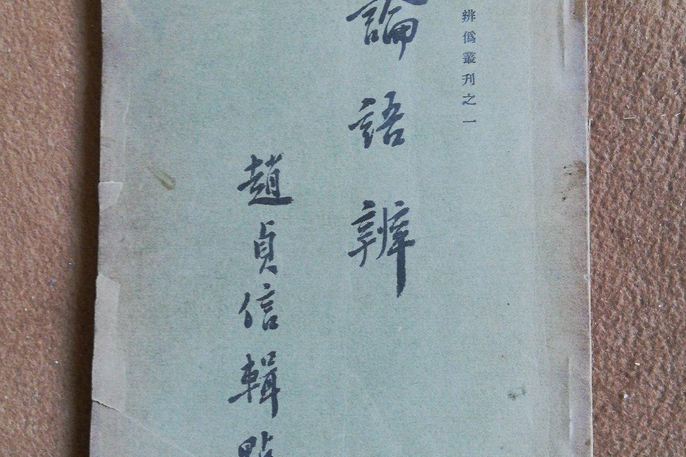 辨僞叢刊之一
論語辨
趙貞信輯點